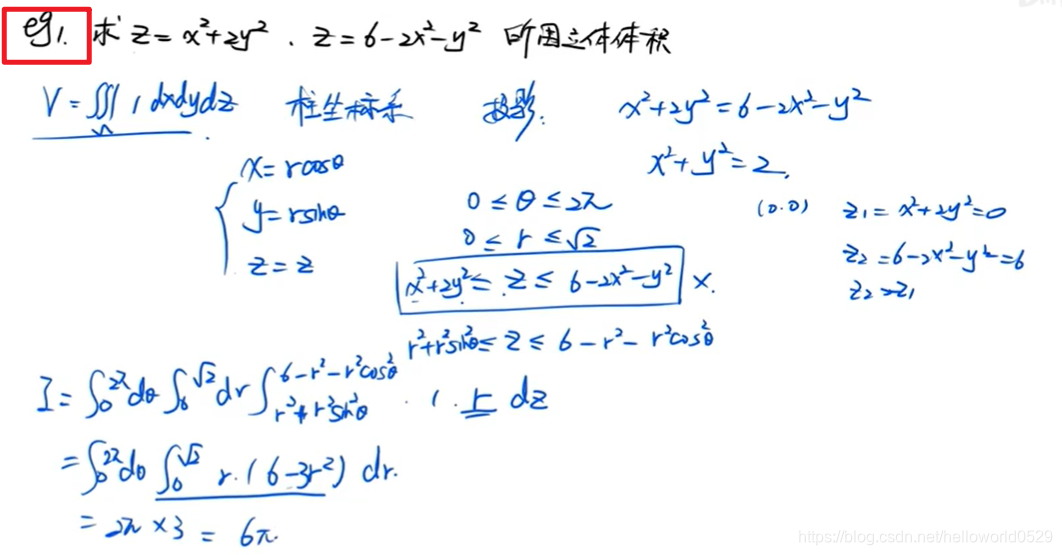 eg1. 求 z=x²+2y² . z=6-2x²-y² 所围立体体积
V=∭ 1 dxdydz 柱坐标系 投影: x²+2y²=6-2x²-y²
x²+y²=2.
x=rcosθ
y=rsinθ
z=z
0≤θ≤2π
0≤r≤√2
x²+2y²≤z≤6-2x²-y² ×.
r²+r²sin²θ≤z≤6-r²-r²cos²θ
(0.0) z₁=x²+2y²=0
z₂=6-2x²-y²=6
z₂>z₁
I=∫₀^2π dθ ∫₀^√2 dr ∫_{r²+r²sin²θ}^{6-r²-r²cos²θ} · 1 · r dz
=∫₀^2π dθ ∫₀^√2 r·(6-3r²) dr.
=2π×3=6π
https://blog.csdn.net/helloworld0529